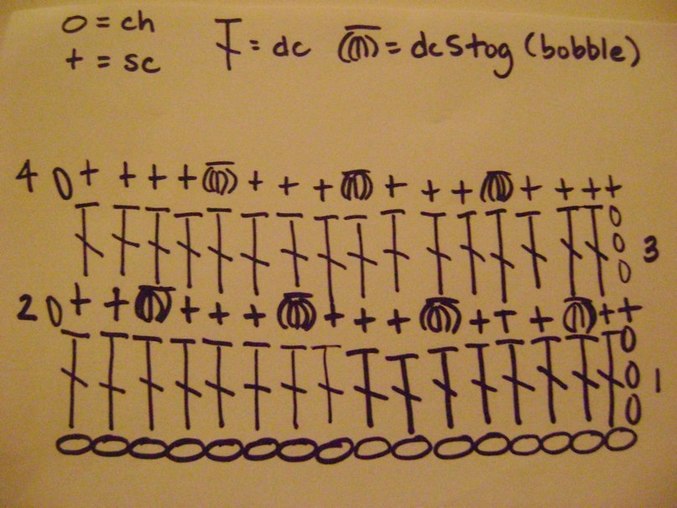 O = ch
+ = sc
= dc
= dc5tog (bobble)
4
3
2
1